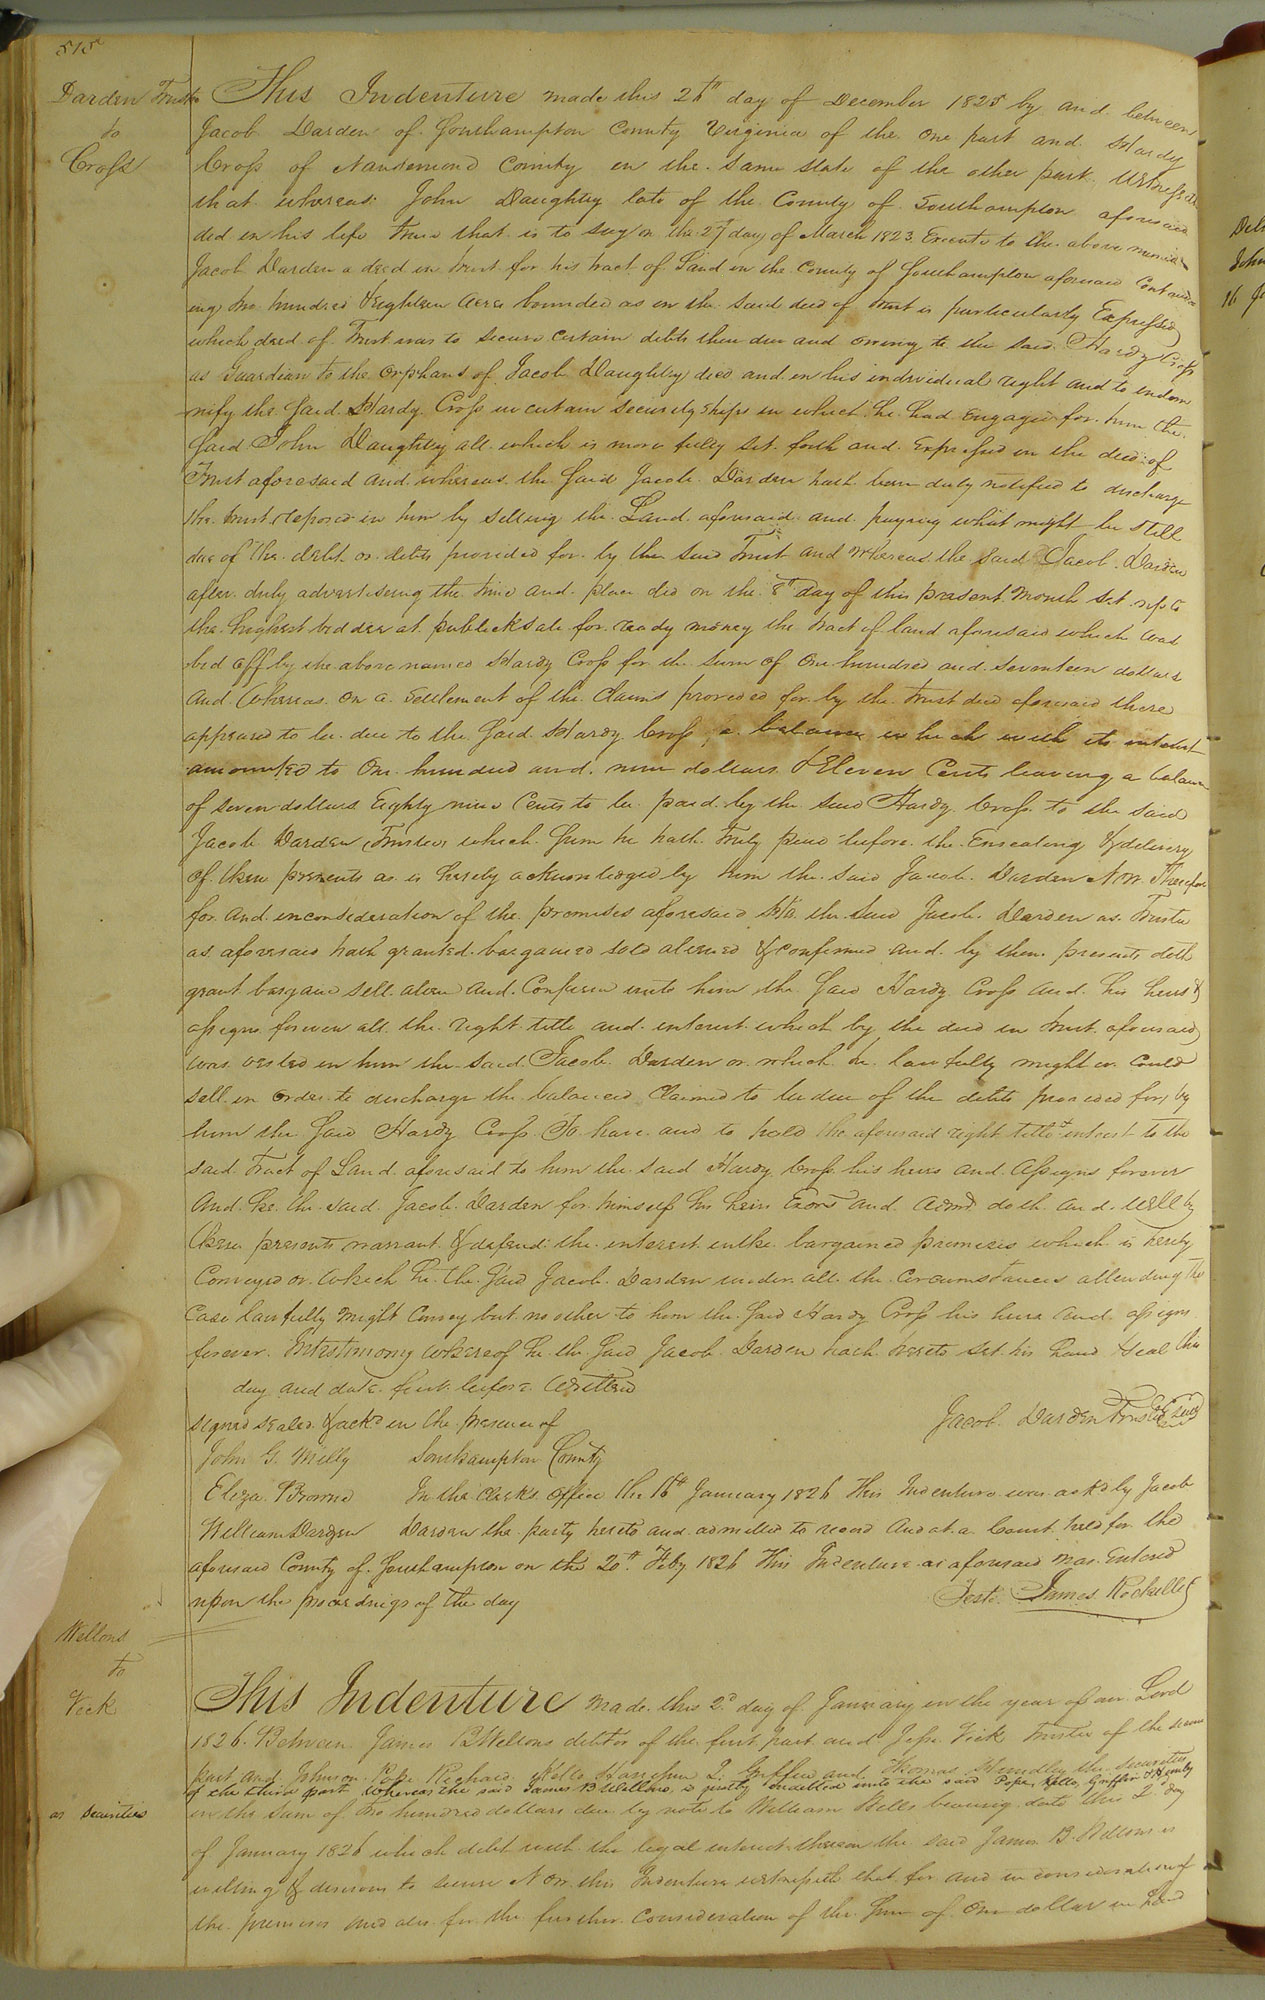 515
Darden Trustee
to
Cross
This Indenture made this 26th day of December 1825 by and between
Jacob Darden of Southampton County Virginia of the one part and Hardy
Cross of Nansemond County in the same state of the other part Witnesseth
that whereas John Daughtry late of the County of Southampton aforesaid
did in his life time that is to say on the 27 day of March 1823 Execute to the above named
Jacob Darden a deed in trust for his tract of Land in the County of Southampton aforesaid Contain
ing two hundred & eighteen acres bounded as in the said deed of trust is particularly Expressed
which deed of Trust was to secure certain debts then due and owing to the said Hardy Cross
as Guardian to the orphans of Jacob Daughtry decd and in his individual right and to indem
nify the said Hardy Cross in certain security ships in which he had engaged for him the
said John Daughtry all which is more fully set forth and Expressed in the deed of
Trust aforesaid and whereas the said Jacob Darden hath been duly notified to discharge
the trust reposed in him by selling the Land aforesaid and paying what might be still
due of the debt or debts provided for by the said Trust and Whereas the said Jacob Darden
after duly advertising the time and place did on the 8th day of this present Month set up to
the highest bidder at publick sale for ready money the tract of land aforesaid which was
bid off by the above named Hardy Cross for the sum of One hundred and seventeen dollars
and Whereas on a settlement of the Claims provided for by the trust deed aforesaid there
appeared to be due to the said Hardy Cross a balance which with its interest
amounted to One hundred and nine dollars & Eleven Cents leaving a balance
of seven dollars Eighty nine Cents to be paid by the said Hardy Cross to the said
Jacob Darden Trustee which sum he hath truly paid before the Ensealing & delivery
of these presents as is hereby acknowledged by him the said Jacob Darden Now Therefore
for and in consideration of the premises aforesaid the said Jacob Darden as Trustee
as aforesaid hath granted bargained sold aliened & confirmed and by these presents doth
grant bargain sell alien and Confirm unto him the said Hardy Cross and his heirs &
assigns forever all the right title and interest which by the deed in trust aforesaid
was vested in him the said Jacob Darden or which he lawfully might or Could
sell in order to discharge the balanced Claimed to be due of the debts provided for by
him the said Hardy Cross To have and to hold the aforesaid right title & interest to the
said Tract of Land aforesaid to him the said Hardy Cross his heirs and Assigns forever
And he the said Jacob Darden for himself his heirs Exors and admrs doth and will by
these presents warrant & defend the interest in the bargained premises which is hereby
Conveyed or which he the said Jacob Darden under all the Circumstances attending the
Case lawfully might Convey but no other to him the said Hardy Cross his heirs and assigns
forever In testimony Whereof he the said Jacob Darden hath hereto set his hand & seal the
day and date first before Written
Signed sealed & ackd in the presence of
Jacob Darden Trustee Seal
John G. Willy
Southampton County
Eliza Browne
In the Clerks Office the 16th January 1826 This Indenture was ackd by Jacob
William Darden
Darden the party hereto and admitted to record And at a Court held for the
aforesaid County of Southampton on the 20th Feby 1826 This Indenture as aforesaid was Entered
upon the proceedings of the day
Teste James Rochelle
Wellons
to
Vick
This Indenture made this 2d day of January in the year of our Lord
1826 Between James B Wellons debtor of the first part and Jesse Vick trustee of the second
part and Johnson Pope Richard Kello Harrison L. Griffin and Thomas Hundley the securities
of the third part Whereas the said James B Wellons is justly indebted unto the said Pope, Kello, Griffin & Hundley
as securities
in the sum of two hundred dollars due by note to William Bells bearing date this 2d day
of January 1826 which debt with the legal interest thereon the said James B. Wellons is
willing & desirous to secure Now this Indenture witnesseth that for and in consideration of
the premises and also for the further consideration of the sum of One dollar in hand